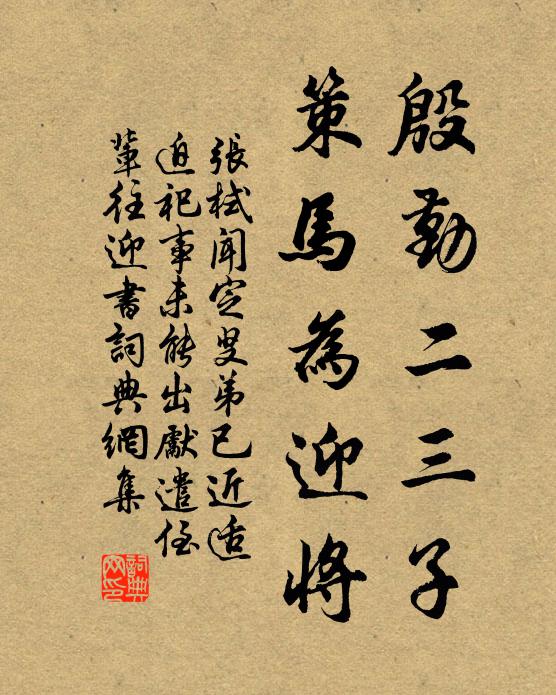 殷勤二三子
策馬為迎將
張栻聞定叟弟已近適
迫祀事未能出獻遣侄
輩往迎書詞典網集
詞典
网印